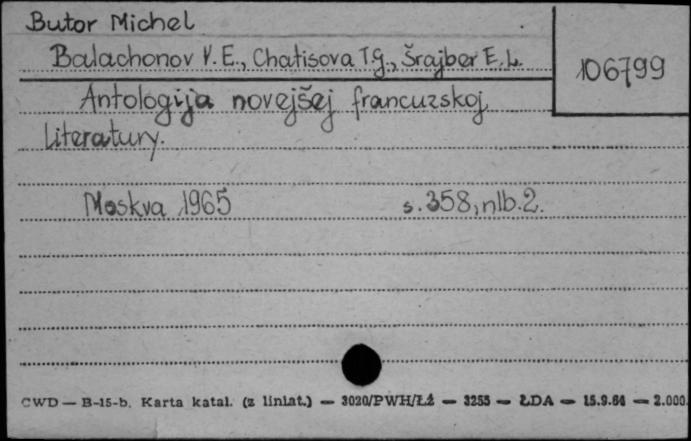 Butor Michel
Balachonov V.E., Chatisova T.G., Šrajber E.L.
106799
Antologija novejšej francuzskoj
literatury.
Moskva 1965 s. 358, nlb. 2.
CWD — B-15-b. Karta katal. (z liniat.) — 3020/PWH/Łż — 3255 — ŁDA — 15.9.64 — 2.000.